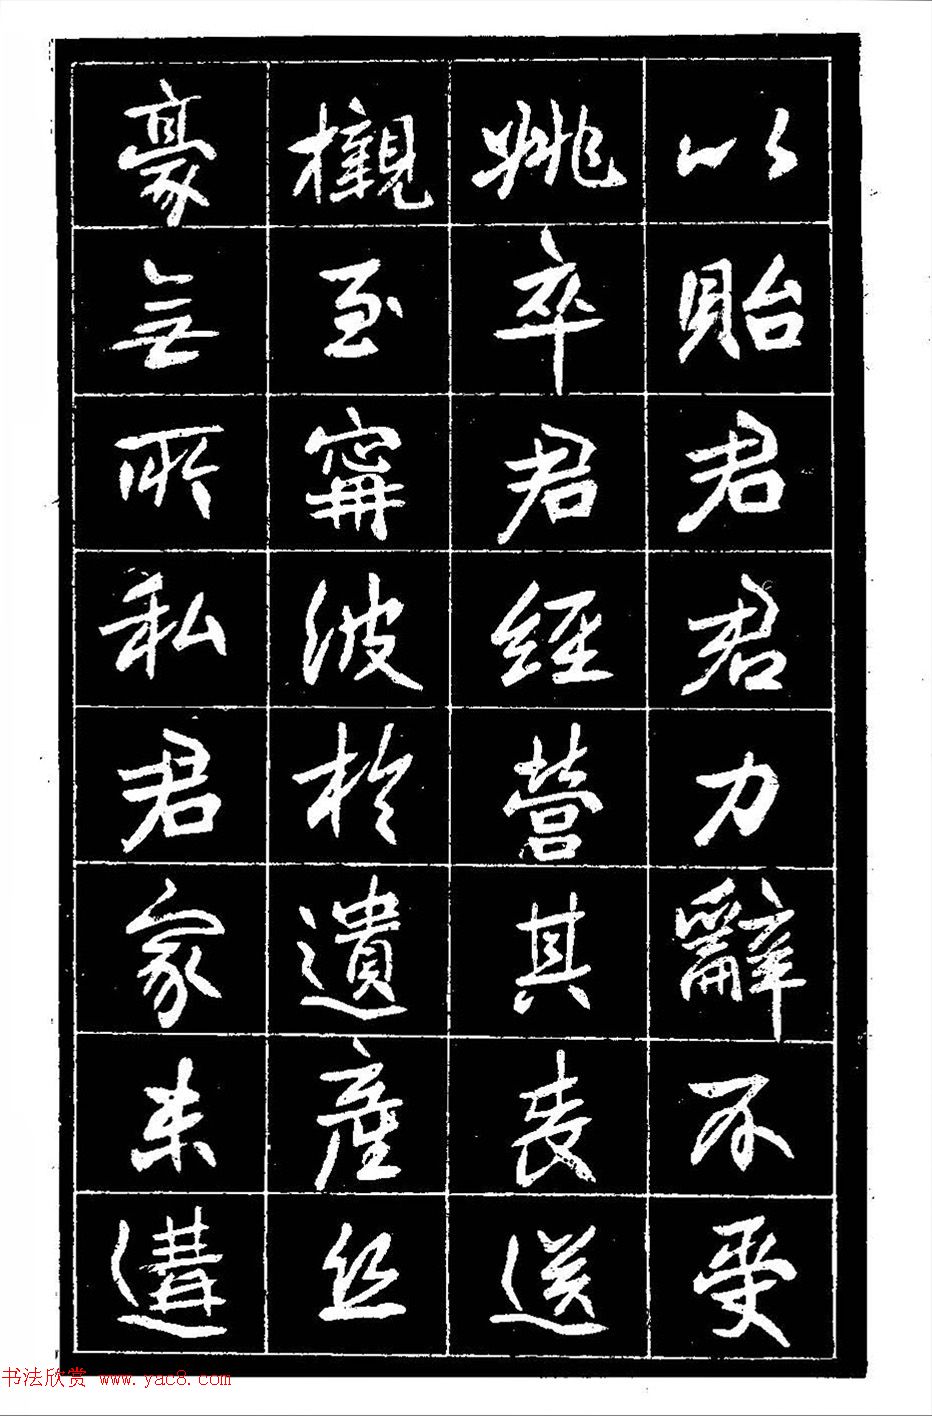 以貽君君力辭不受
姚卒君經營其喪送
櫬至甯波於遺產丝
豪無所私君家未遘
书法欣赏 www.yac8.com